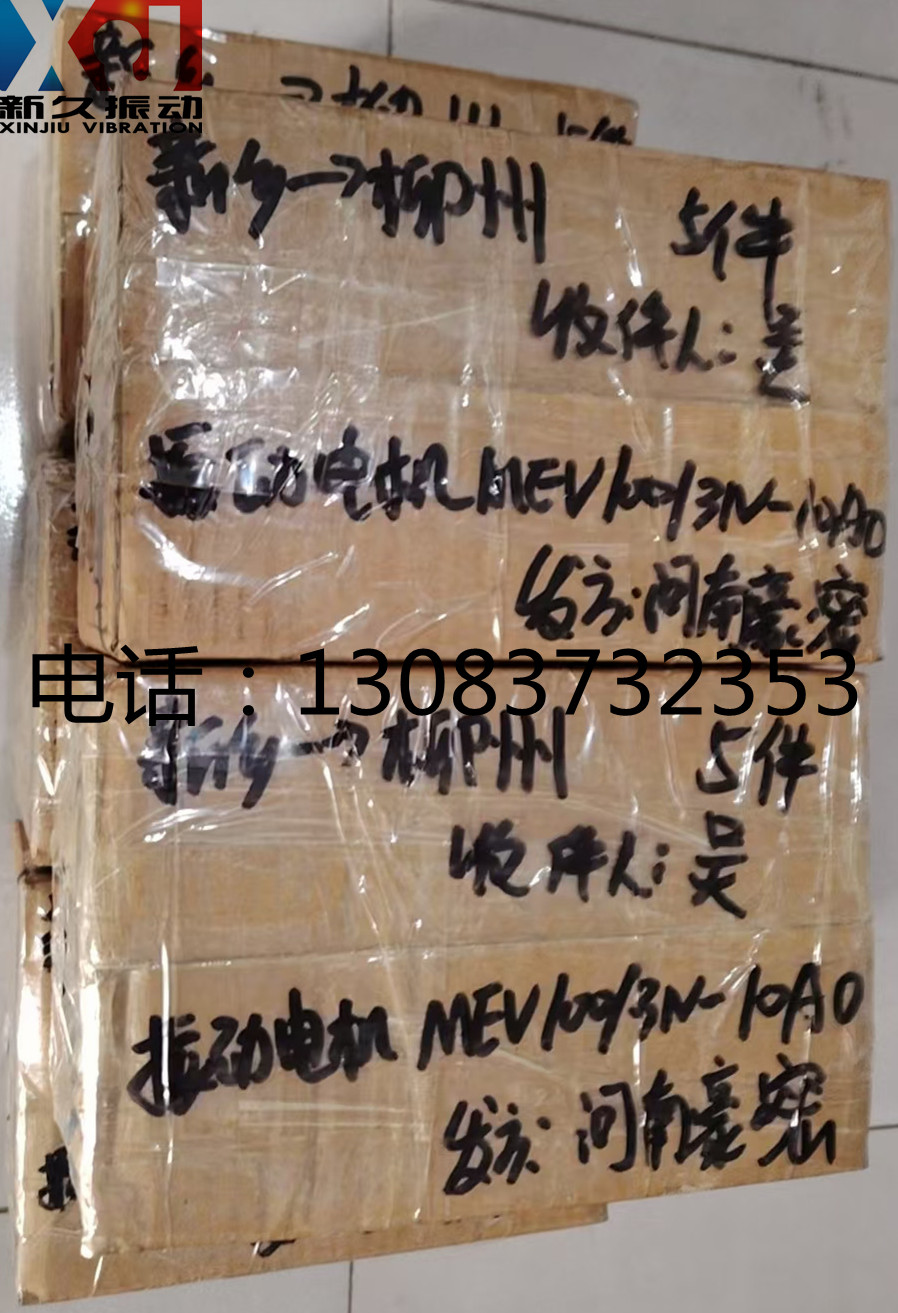 新久振动
XINJIU VIBRATION
柳州
新乡→柳州 5件
收件人:吴
振动电机MEV100/3N-10A0
发方:河南豪密
电话:13083732353
新乡→柳州 5件
收件人:吴
振动电机 MEV100/3N-10A0
发方:河南豪密